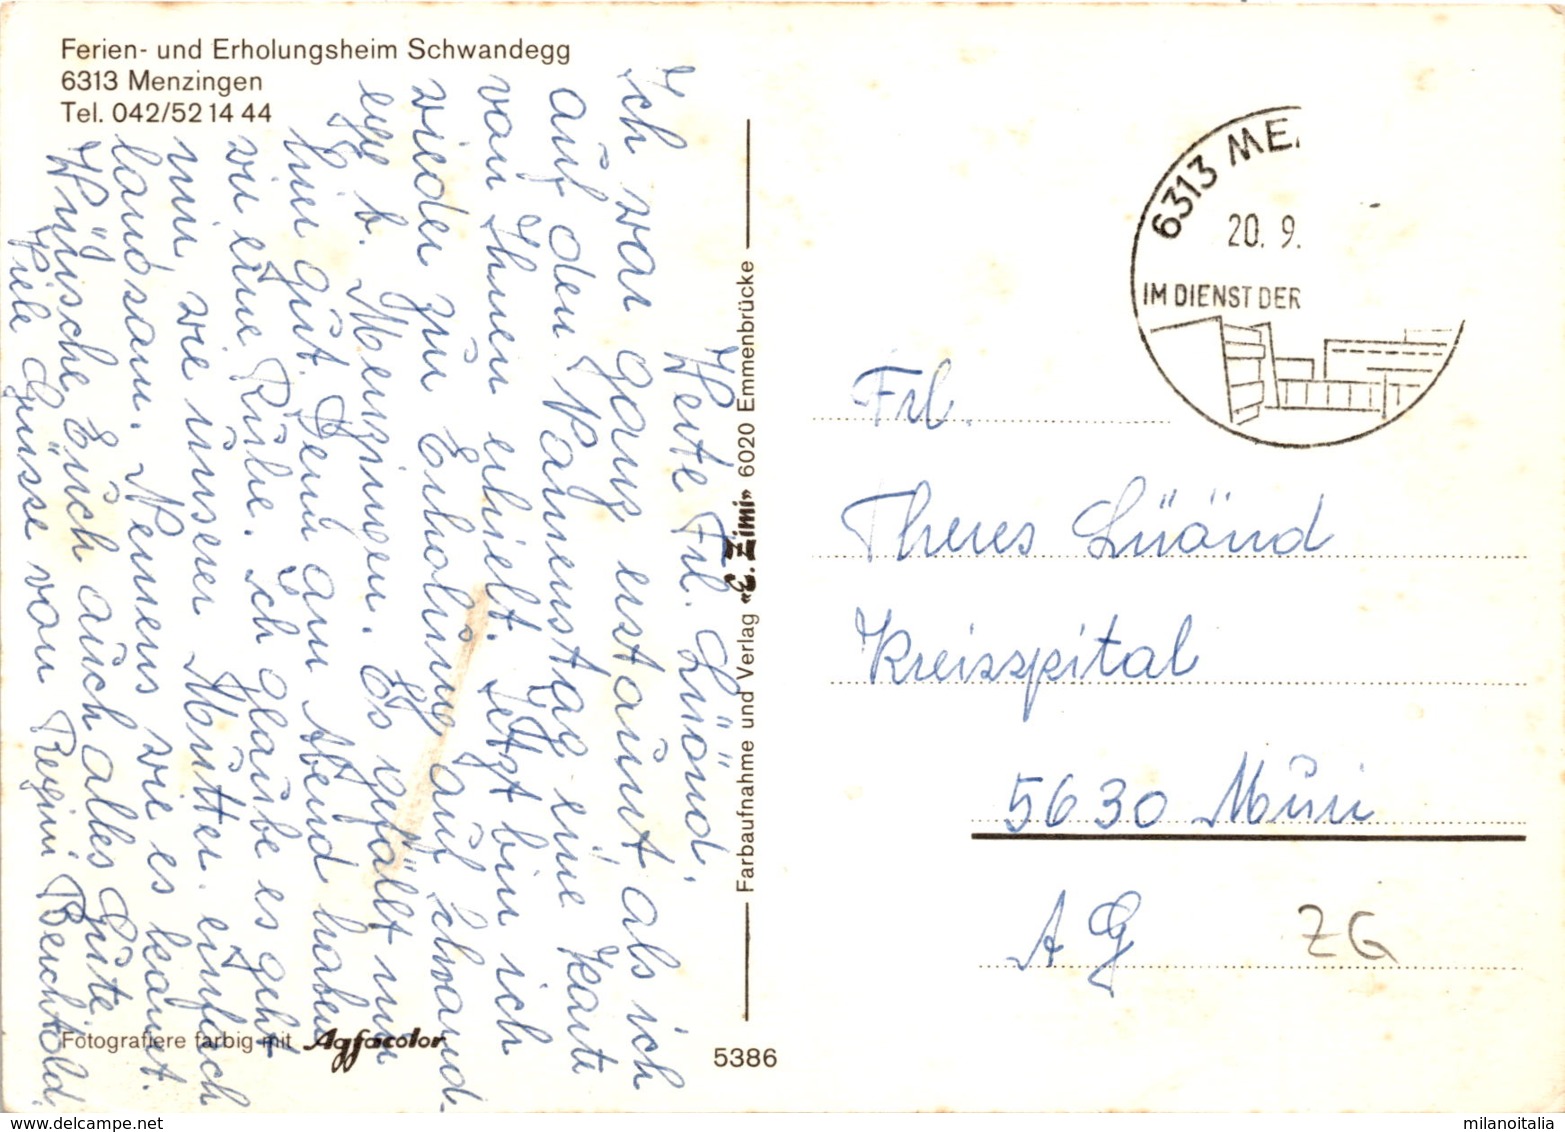 Ferien- und Erholungsheim Schwandegg
6313 Menzingen
Tel. 042/52 14 44
Werte Frl. Lüönd.
Ich war ganz erstaunt, als ich
auf den Namenstag eine Karte
von Ihnen erhielt. Jetzt bin ich
wieder zur Erholung auf Schwand-
egg b. Menzingen. Es gefällt mir
hier gut. Denn am Abend haben
wir eine Ruhe. Ich glaube es geht
mir wie unserer Mutter. einfach
landsam. Nemens wie es kommt.
Wünsche Euch auch alles Gute.
Viele Grüsse von Regini Berchtold
Fotografiere farbig mit Agfacolor
Farbaufnahme und Verlag «E. Zimi» 6020 Emmenbrücke
5386
6313 ME
20. 9.
IM DIENST DER
Frl.
Theres Lüönd
Kreisspital
5630 Muri
AG
ZG
milanoitalia